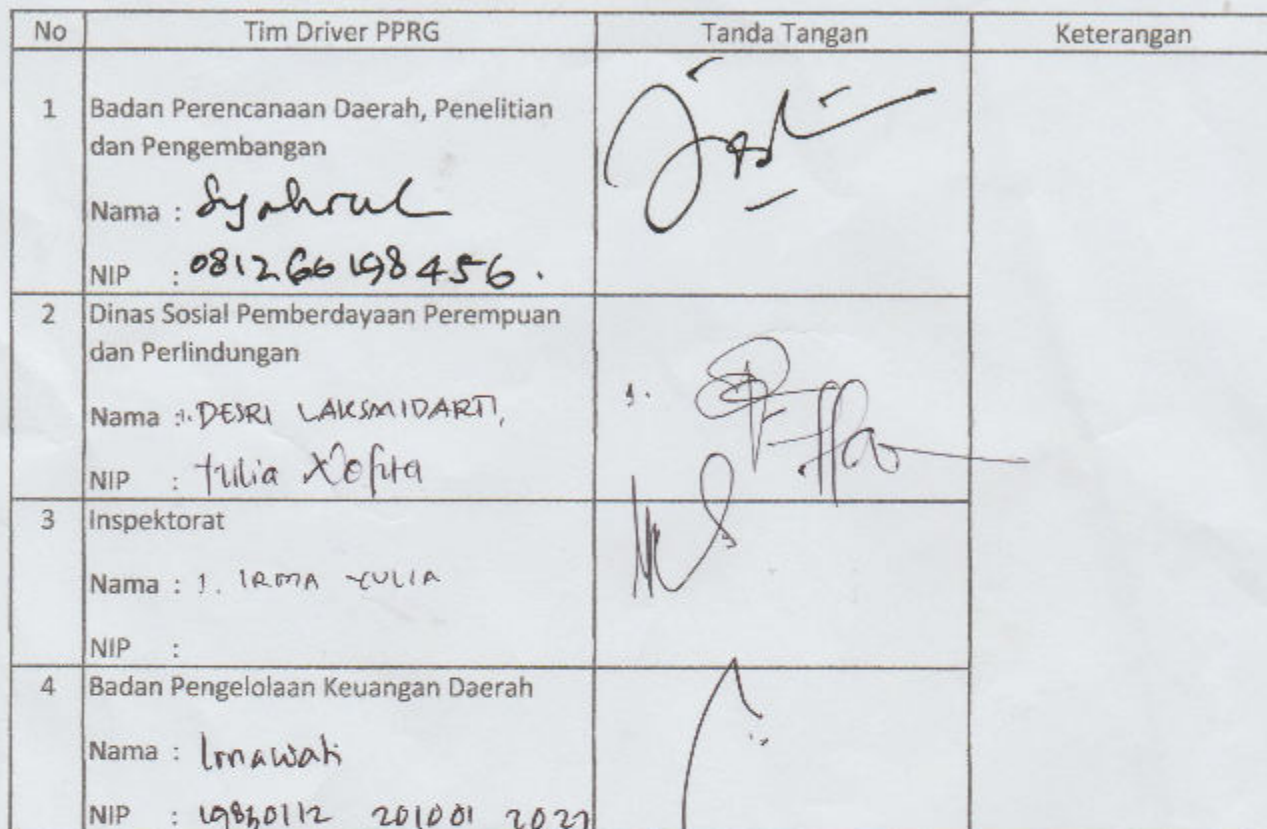 No Tim Driver PPRG Tanda Tangan Keterangan
1 Badan Perencanaan Daerah, Penelitian
dan Pengembangan
Nama : Syahrul
NIP : 081266198456.
2 Dinas Sosial Pemberdayaan Perempuan
dan Perlindungan
Nama : 1. DESRI LAKSMIDARTI, 1.
NIP : Yulia
3 Inspektorat
Nama : 1. IRMA YULIA
NIP :
4 Badan Pengelolaan Keuangan Daerah
Nama : Irnawati
NIP : 201001